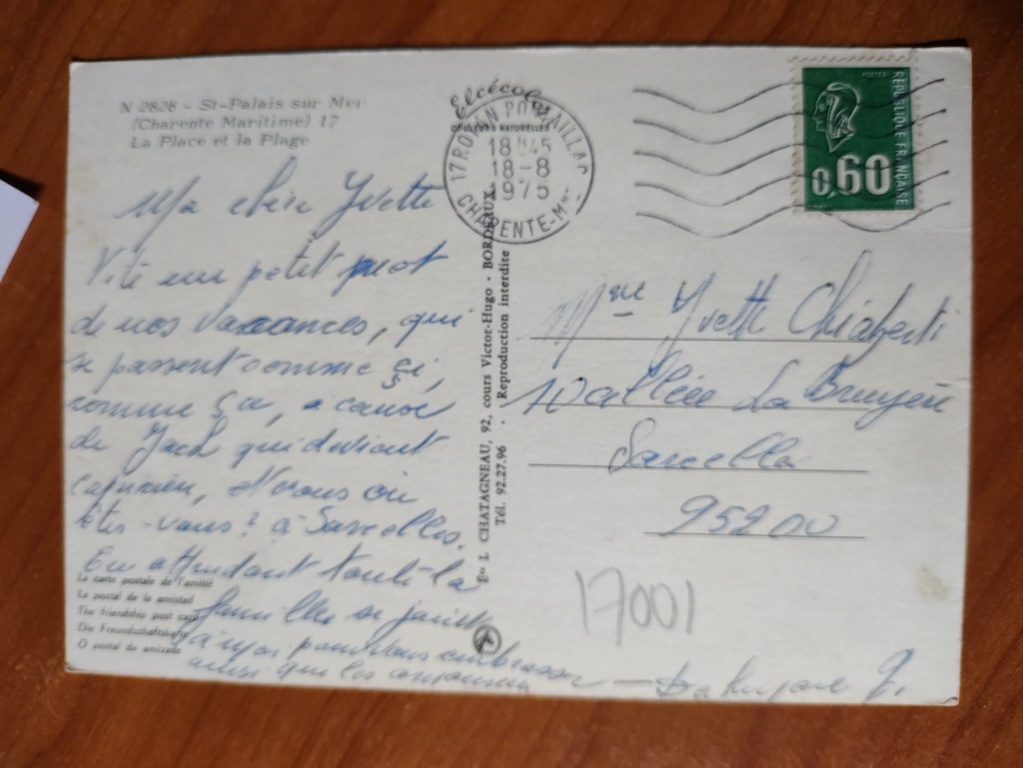 N 2828 - St-Palais sur Mer
(Charente Maritime) 17
La Place et la Plage
Elcécolor
COULEURS NATURELLES
17 ROYAN PONTAILLAC
18H45
18-8
1975
CHARENTE-Mme
POSTES
REPUBLIQUE FRANÇAISE
0,60
Ma chère Yvette
Vite un petit mot
de nos vacances, qui
se passent comme çi,
comme ça, a cause
de Jack qui devient
Et vous où
êtes-vous? à Sarcelles.
En attendant toute la
famille se joint
à moi pour vous embrasser
ainsi que les
Mme Yvette Chiaberti
10 allée La Bruyère
Sarcelles
95200
17001
Ets L. CHATAGNEAU, 92, cours Victor-Hugo - BORDEAUX
Tél. 92.27.96 - Reproduction interdite
La carte postale de l'amitié
La postal de la amistad
The friendship post card
Die Freundschaftskarte
O postal de amizade